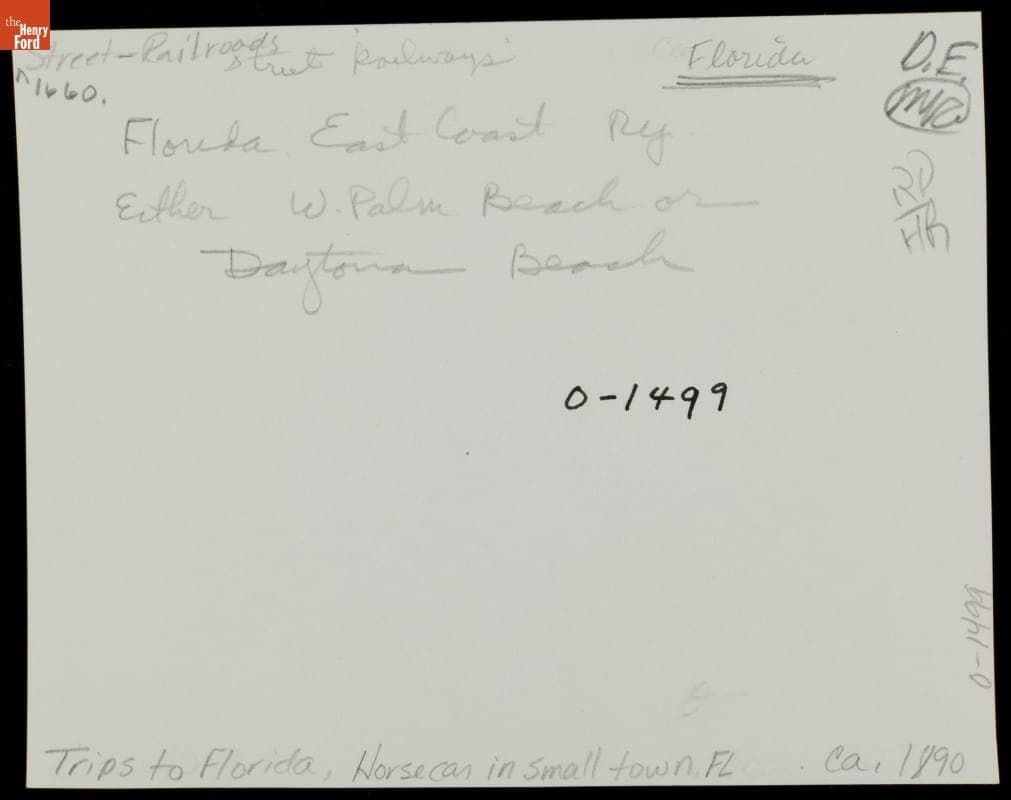 the Henry Ford
Street-Railroads
Street Railways
Florida
D.E.
1660.
Florida East Coast Ry
Either W. Palm Beach or
Daytona Beach
0-1499
0-1499
Trips to Florida, Horsecar in small town, FL ca. 1890